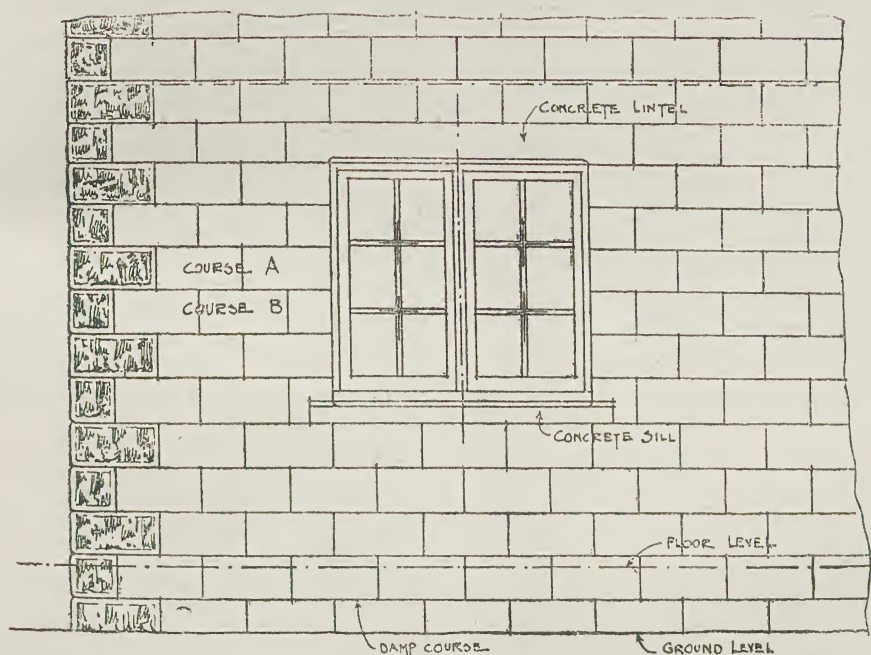 CONCRETE LINTEL
COURSE A
COURSE B
CONCRETE SILL
FLOOR LEVEL
DAMP COURSE
GROUND LEVEL